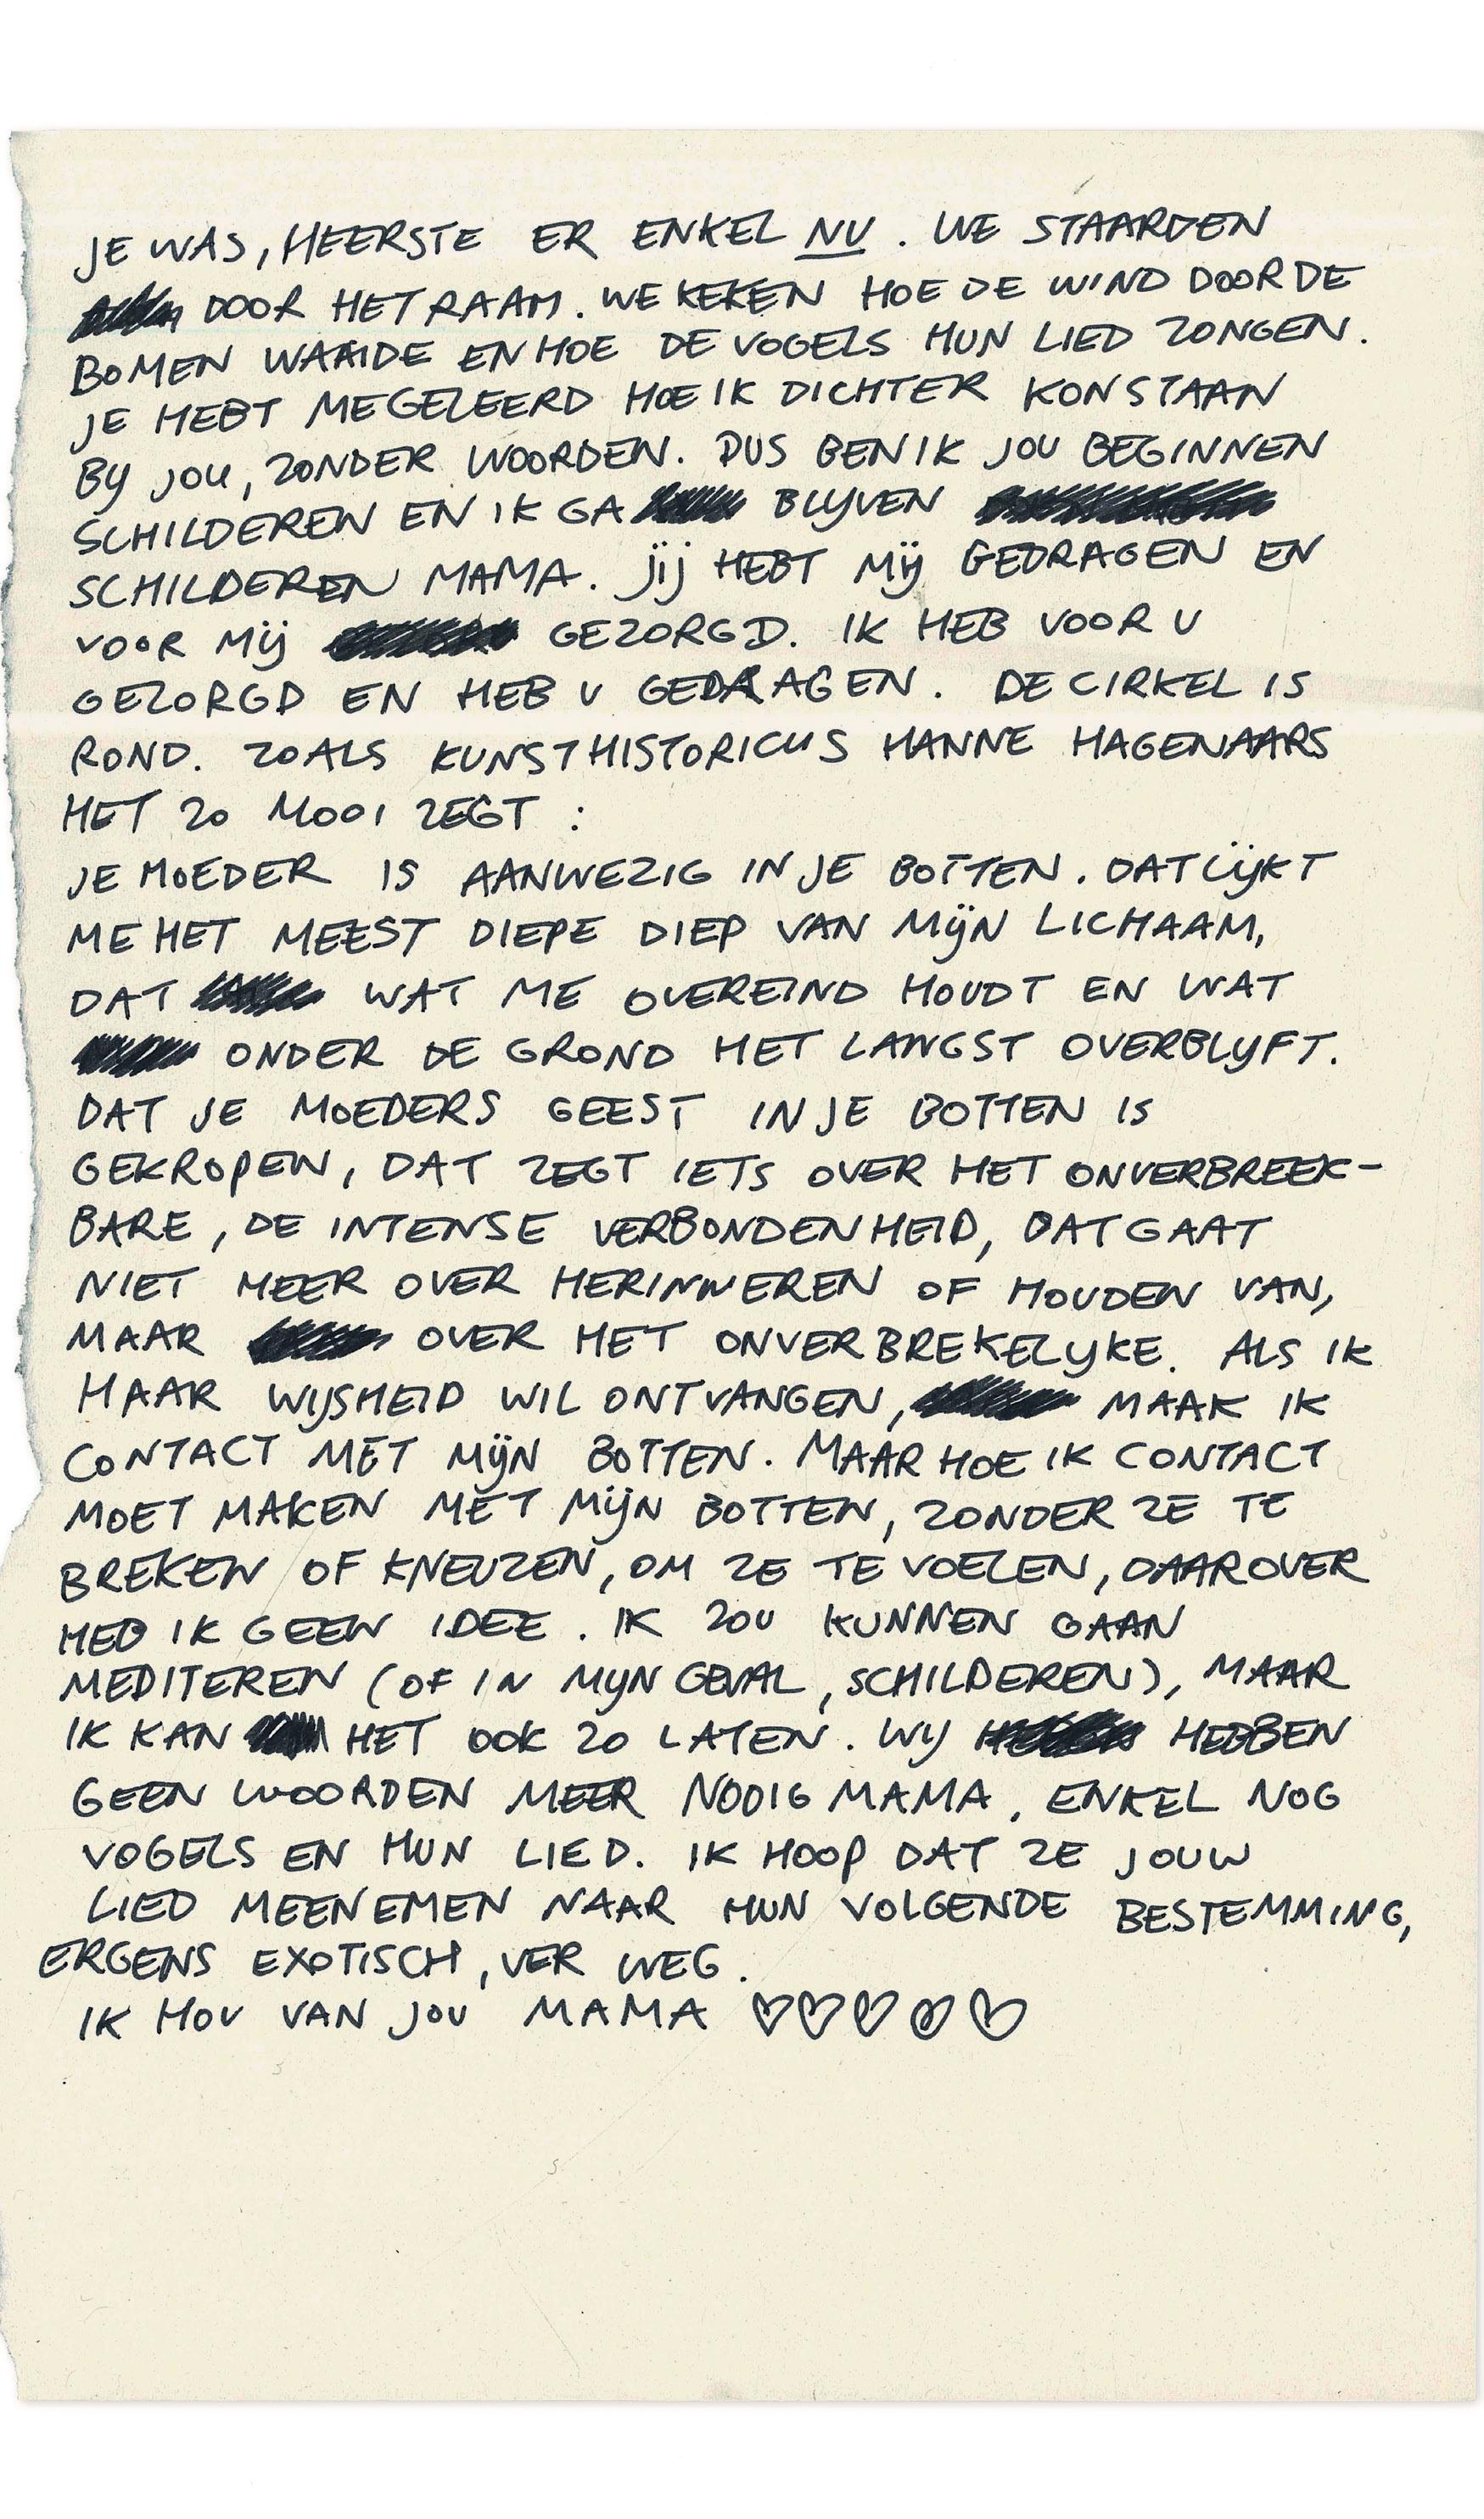 JE WAS, HEERSTE ER ENKEL NU. WE STAARDEN
DOOR HET RAAM. WE KEKEN HOE DE WIND DOOR DE
BOMEN WAAIDE EN HOE DE VOGELS HUN LIED ZONGEN.
JE HEBT ME GELEERD HOE IK DICHTER KON STAAN
BIJ JOU, ZONDER WOORDEN. DUS BEN IK JOU BEGINNEN
SCHILDEREN EN IK GA BLIJVEN
SCHILDEREN MAMA. JIJ HEBT MIJ GEDRAGEN EN
VOOR MIJ GEZORGD. IK HEB VOOR U
GEZORGD EN HEB U GEDRAGEN. DE CIRKEL IS
ROND. ZOALS KUNSTHISTORICUS HANNE HAGENAARS
HET ZO MOOI ZEGT :
JE MOEDER IS AANWEZIG IN JE BOTTEN. DAT LIJKT
ME HET MEEST DIEPE DIEP VAN MIJN LICHAAM,
DAT WAT ME OVEREIND HOUDT EN WAT
ONDER DE GROND HET LANGST OVERBLIJFT.
DAT JE MOEDERS GEEST IN JE BOTTEN IS
GEKROPEN, DAT ZEGT IETS OVER HET ONVERBREEK-
BARE, DE INTENSE VERBONDENHEID, DAT GAAT
NIET MEER OVER HERINNEREN OF HOUDEN VAN,
MAAR OVER HET ONVERBREKELIJKE. ALS IK
HAAR WIJSHEID WIL ONTVANGEN, MAAK IK
CONTACT MET MIJN BOTTEN. MAAR HOE IK CONTACT
MOET MAKEN MET MIJN BOTTEN, ZONDER ZE TE
BREKEN OF KNEUZEN, OM ZE TE VOELEN, DAAROVER
HEB IK GEEN IDEE. IK ZOU KUNNEN GAAN
MEDITEREN (OF IN MIJN GEVAL, SCHILDEREN), MAAR
IK KAN HET OOK ZO LATEN. WIJ HEBBEN
GEEN WOORDEN MEER NODIG MAMA, ENKEL NOG
VOGELS EN HUN LIED. IK HOOP DAT ZE JOUW
LIED MEENEMEN NAAR HUN VOLGENDE BESTEMMING,
ERGENS EXOTISCH, VER WEG.
IK HOU VAN JOU MAMA ♡♡♡♡♡